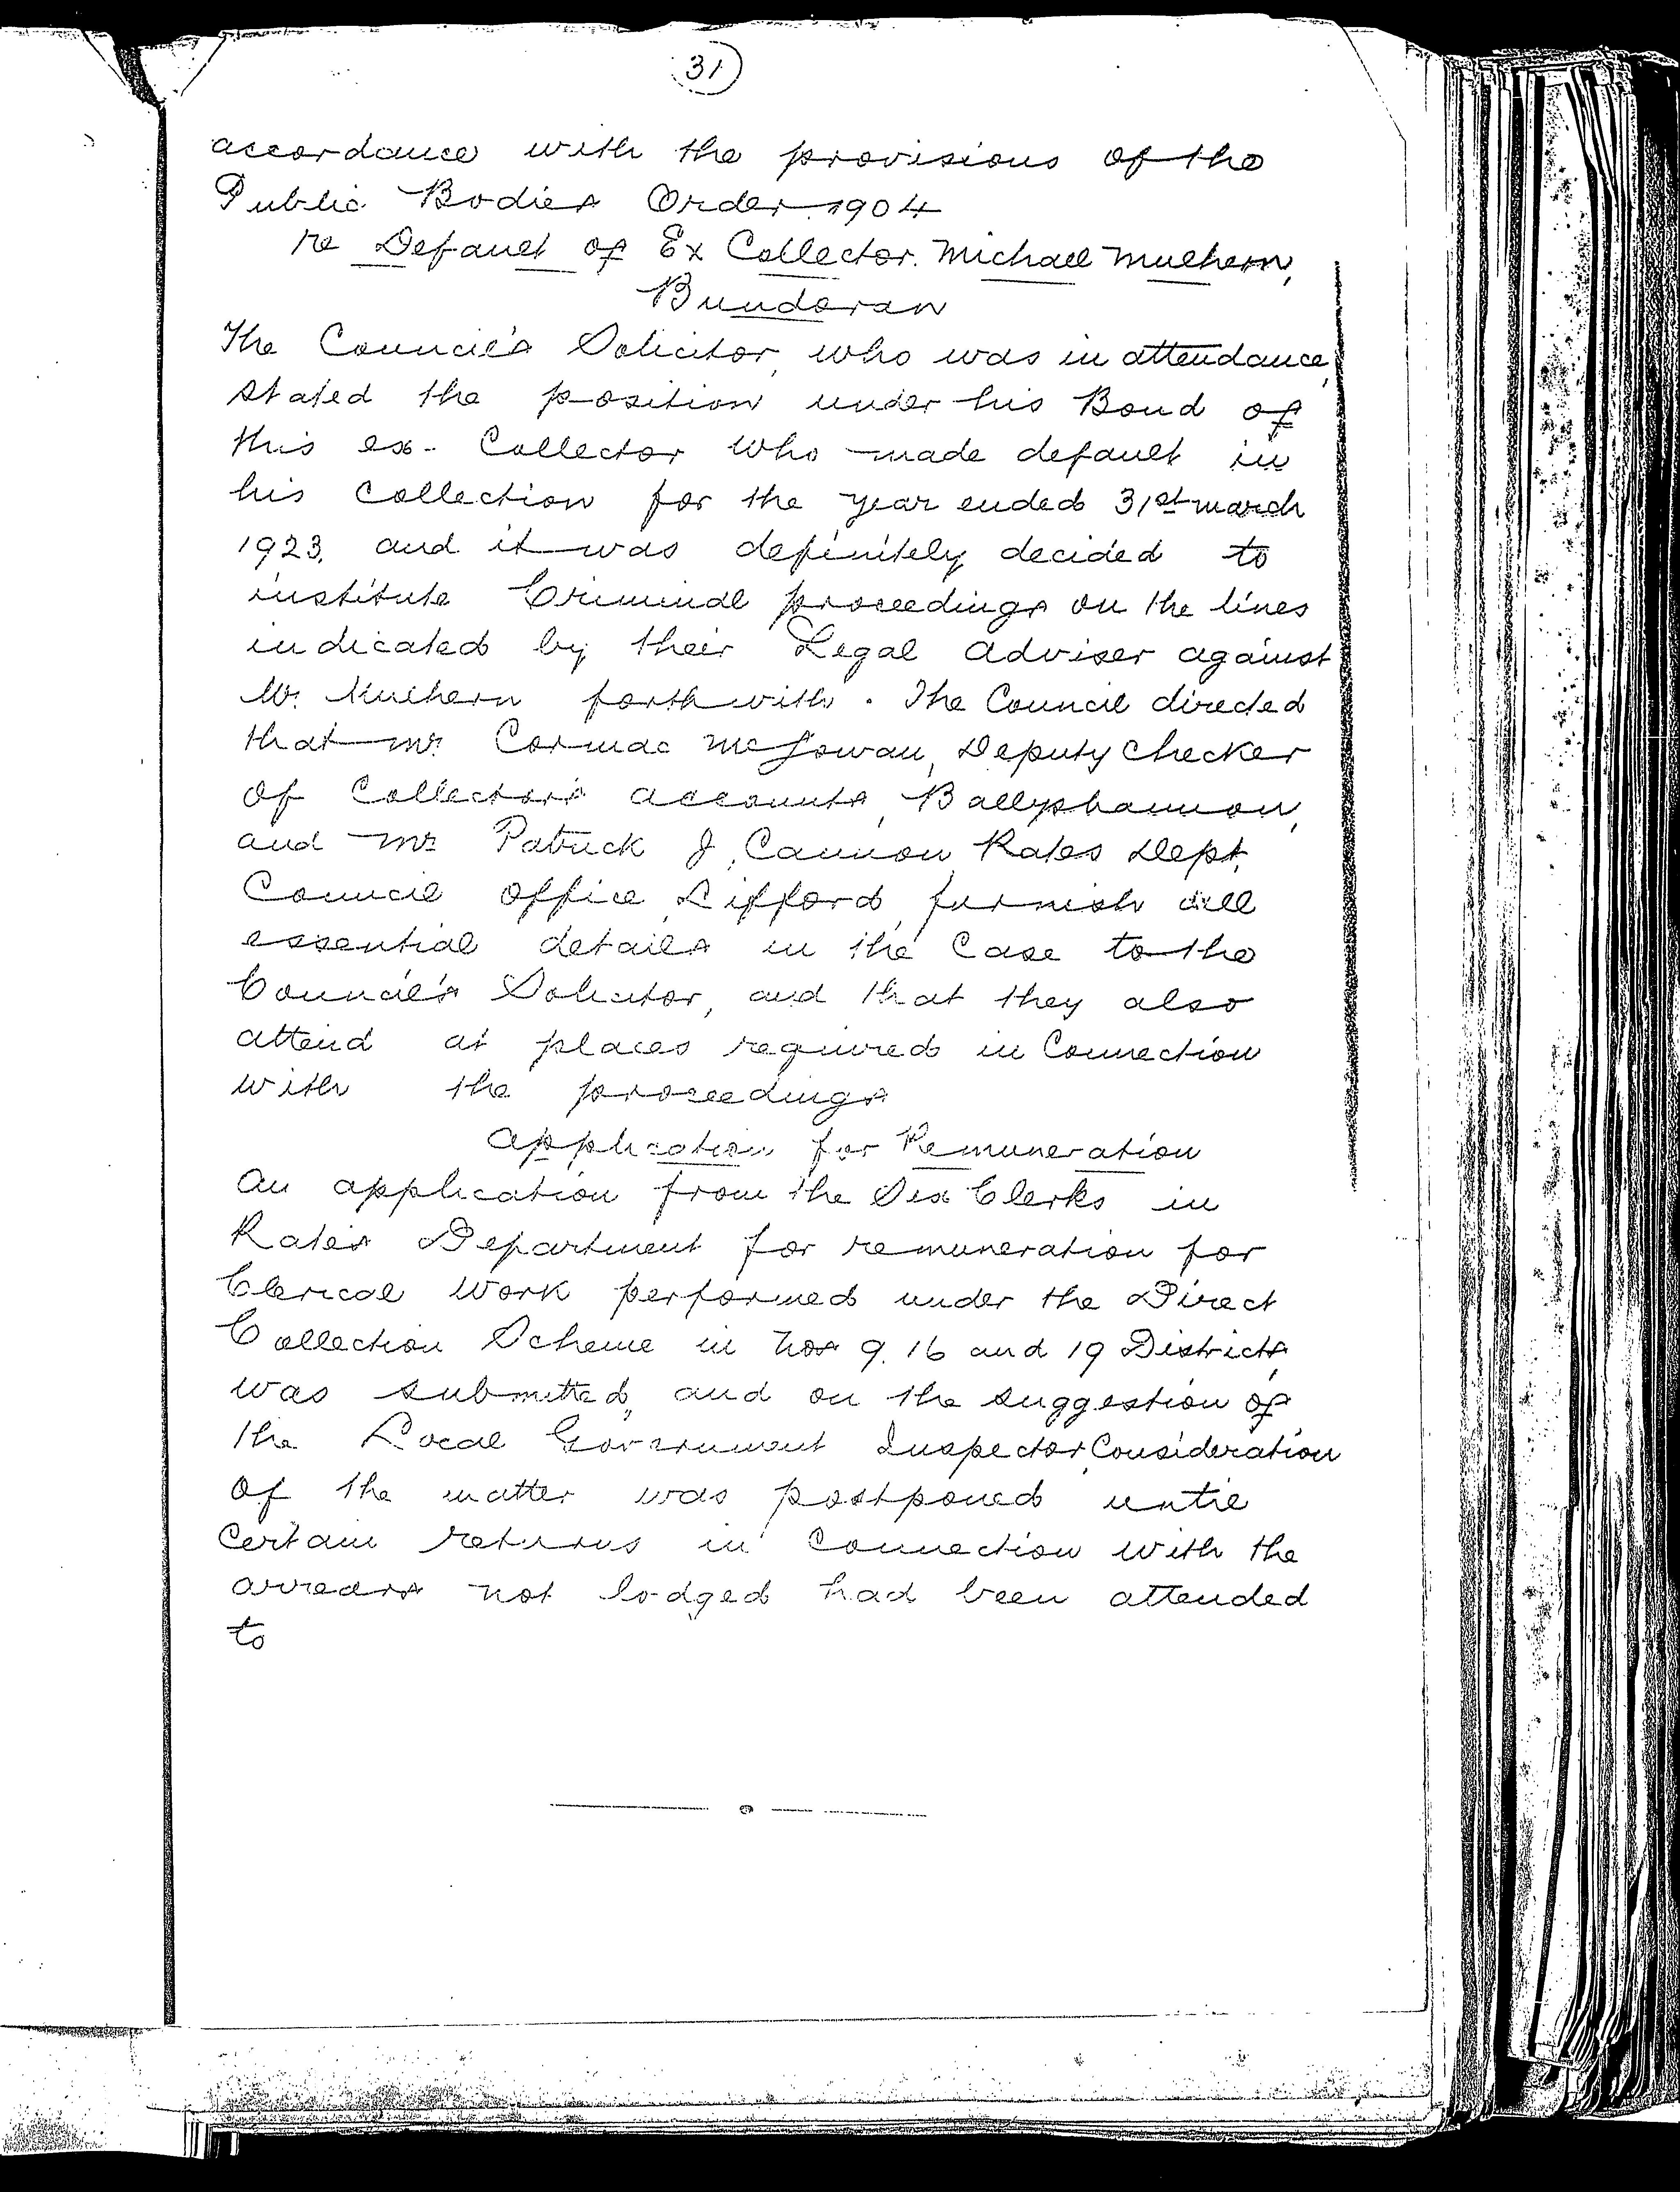 31
accordance with the provisions of the
Public Bodies Order 1904
re Default of Ex Collector. Michael Mulhern,
Bundoran
The Council's Solicitor, who was in attendance,
stated the position under his Bond of
this ex- Collector who made default in
his collection for the year ended 31st march
1923, and it was definitely decided to
institute Criminal proceedings on the lines
indicated by their Legal Adviser against
Mr. Mulhern forthwith. The Council directed
that Mr. Cormac McGowan, Deputy Checker
of Collectors accounts, Ballyshannon,
and Mr Patrick J. Cannon Rates Dept.
Council Office, Lifford, furnish all
essential details in the case to the
Council's Solicitor, and that they also
attend at places required in Connection
with the proceedings
Application for Remuneration
An application from the Six Clerks in
Rates Department for remuneration for
Clerical Work performed under the Direct
Collection Scheme in Nos 9. 16 and 19 Districts
was submitted, and on the suggestion of
the Local Government Inspector, Consideration
of the matter was postponed until
certain returns in connection with the
arrears not lodged had been attended
to